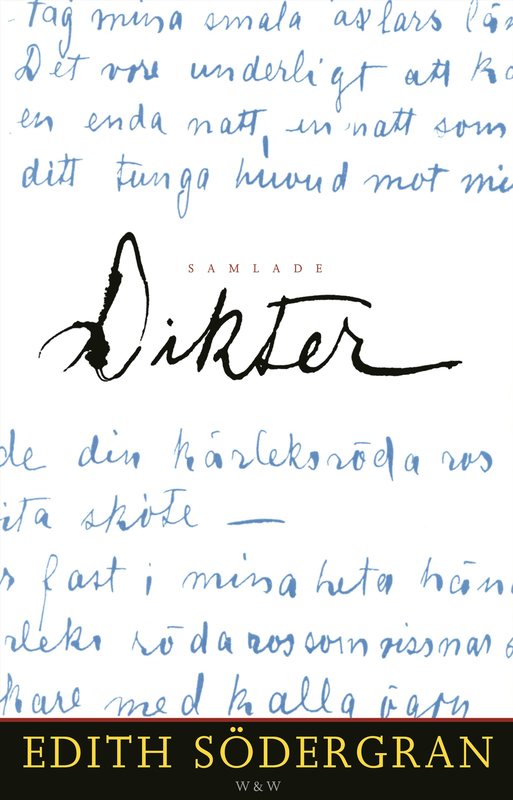 tag mina smala axlars län
Det vore underligt att ka
en enda natt, en natt som
ditt tunga huvud mot mi
SAMLADE
Dikter
de din kärleksröda ros
ita sköte —
r fast i mina heta hän
rleks röda ros som vissnar s
kare med kalla ögon
EDITH SÖDERGRAN
W&W